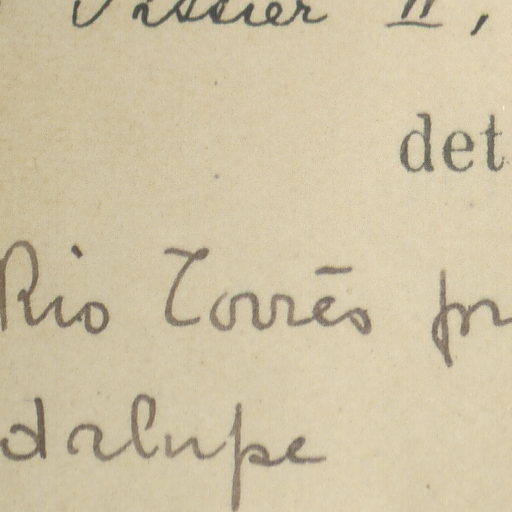 Tissier II,
det
Rio Torrēs pr
dalupe